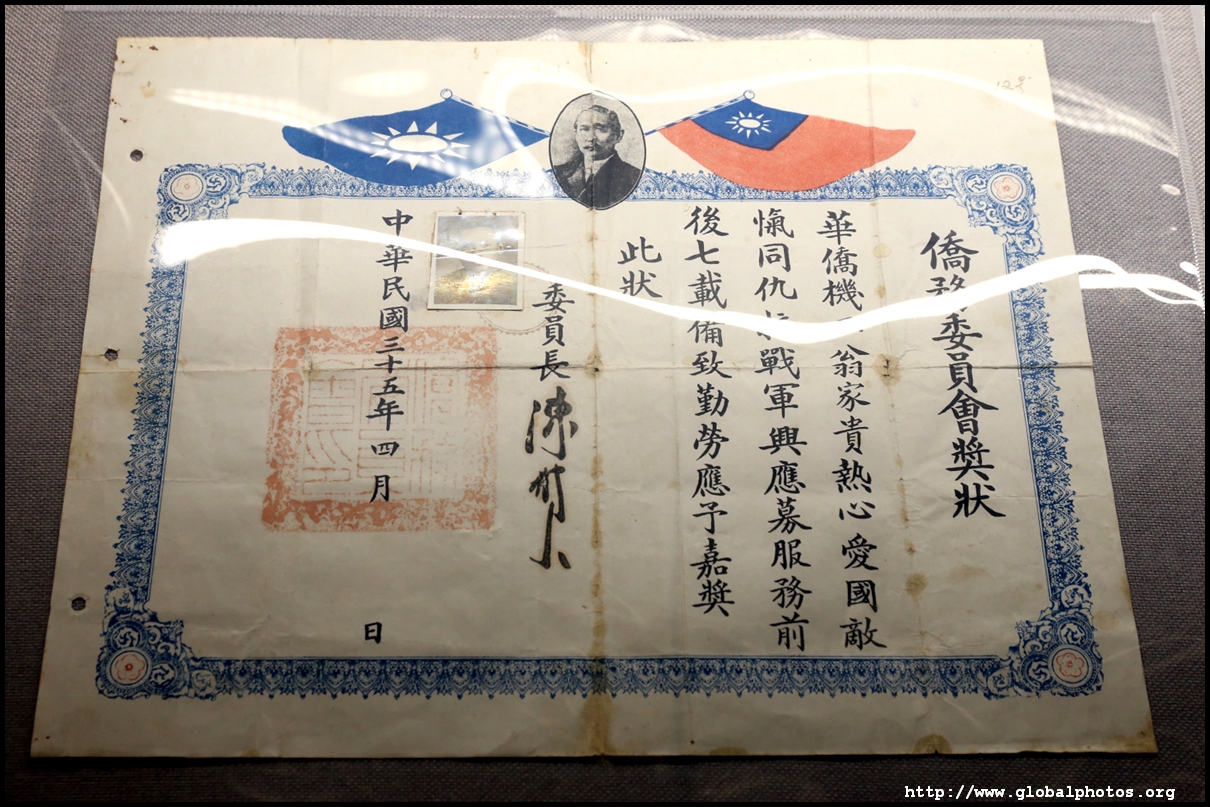 僑務委員會獎狀
華僑機翁家貴熱心愛國敵
愾同仇抗戰軍興應募服務前
後七載備致勤勞應予嘉獎
此狀
委員長 陳樹人
中華民國三十五年四月 日
http://www.globalphotos.org